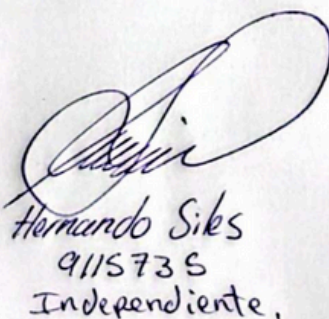 Hernando Siles
9115735
Independiente.